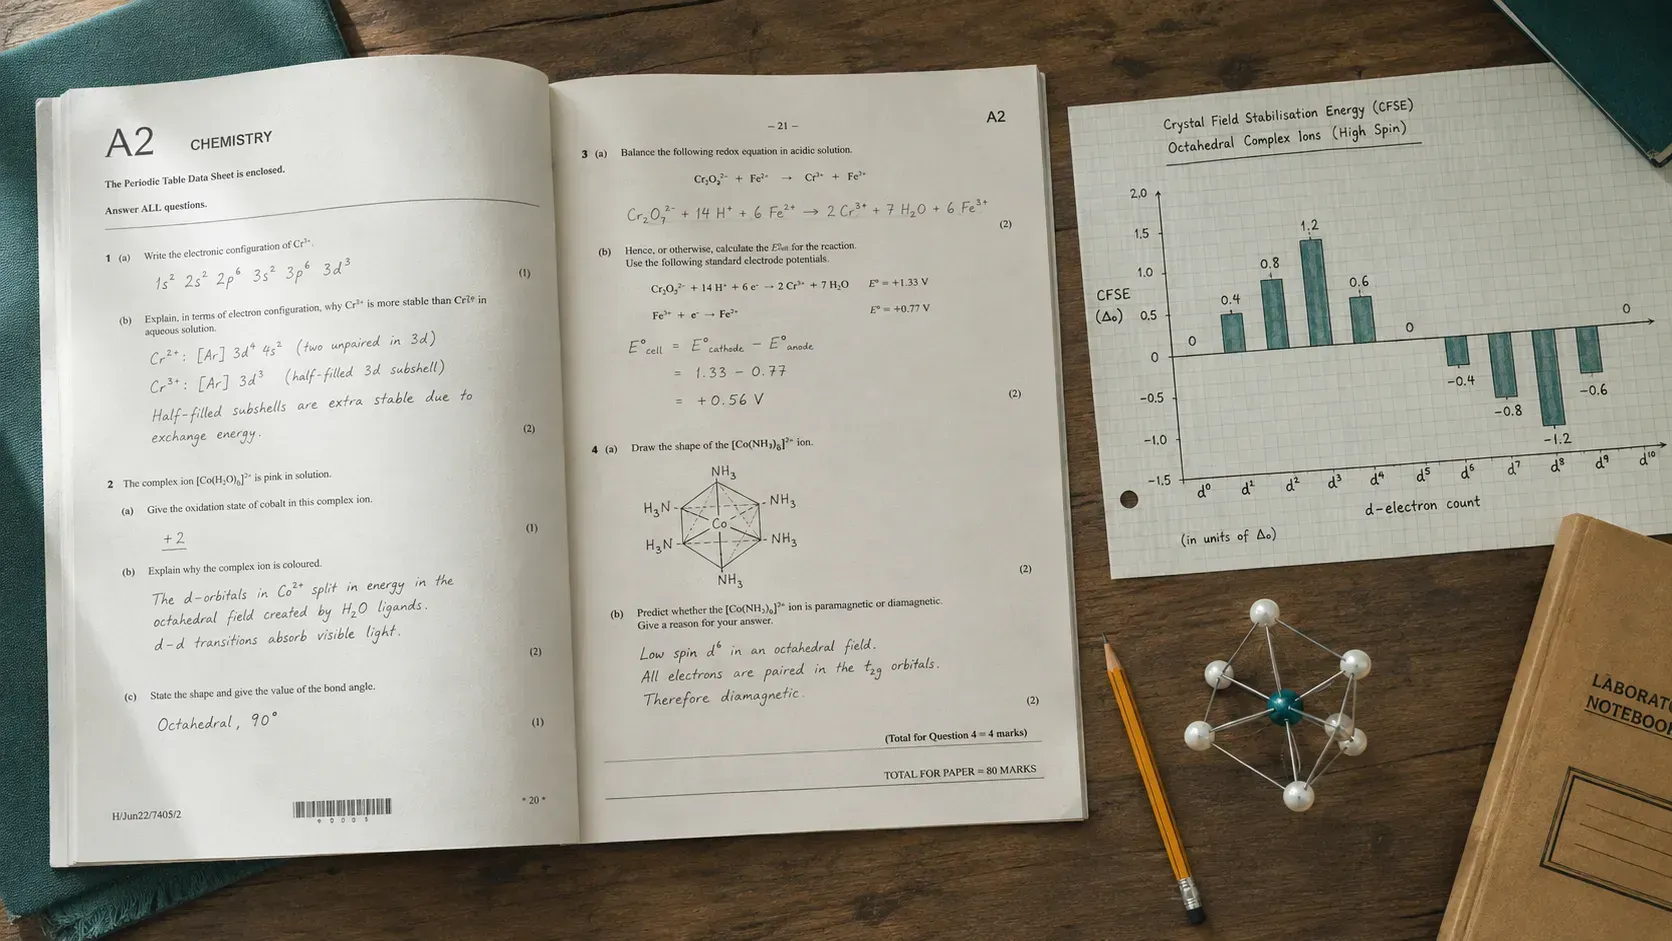 A2 CHEMISTRY
The Periodic Table Data Sheet is enclosed.
Answer ALL questions.
1 (a) Write the electronic configuration of Cr³⁺.
1s² 2s² 2p⁶ 3s² 3p⁶ 3d³
(1)
(b) Explain, in terms of electron configuration, why Cr³⁺ is more stable than in
aqueous solution.
Cr²⁺: [Ar] 3d⁴ 4s² (two unpaired in 3d)
Cr³⁺: [Ar] 3d³ (half-filled 3d subshell)
Half-filled subshells are extra stable due to
exchange energy.
(2)
2 The complex ion [Co(H₂O)₆]²⁺ is pink in solution.
(a) Give the oxidation state of cobalt in this complex ion.
+2
(1)
(b) Explain why the complex ion is coloured.
The d-orbitals in Co²⁺ split in energy in the
octahedral field created by H₂O ligands.
d-d transitions absorb visible light.
(2)
(c) State the shape and give the value of the bond angle.
Octahedral, 90°
(1)
H/Jun22/7405/2
* 20 *
– 21 –
A2
3 (a) Balance the following redox equation in acidic solution.
Cr₂O₇²⁻ + Fe²⁺ → Cr³⁺ + Fe³⁺
Cr₂O₇²⁻ + 14 H⁺ + 6 Fe²⁺ → 2 Cr³⁺ + 7 H₂O + 6 Fe³⁺
(2)
(b) Hence, or otherwise, calculate the for the reaction.
Use the following standard electrode potentials.
Cr₂O₇²⁻ + 14 H⁺ + 6 e⁻ → 2 Cr³⁺ + 7 H₂O E° = +1.33 V
Fe³⁺ + e⁻ → Fe²⁺ E° = +0.77 V
E°cell = E°cathode − E°anode
= 1.33 − 0.77
= +0.56 V
(2)
4 (a) Draw the shape of the [Co(NH₃)₆]²⁺ ion.
NH₃
H₃N NH₃
Co
H₃N NH₃
NH₃
(2)
(b) Predict whether the [Co(NH₃)₆]²⁺ ion is paramagnetic or diamagnetic.
Give a reason for your answer.
Low spin d⁶ in an octahedral field.
All electrons are paired in the t₂g orbitals.
Therefore diamagnetic.
(2)
(Total for Question 4 = 4 marks)
TOTAL FOR PAPER = 80 MARKS
Crystal Field Stabilisation Energy (CFSE)
Octahedral Complex Ions (High Spin)
CFSE
(Δ₀)
2.0
1.5
1.0
0.5
0
-0.5
-1.0
-1.5
0
0.4
0.8
1.2
0.6
0
-0.4
-0.8
-1.2
-0.6
0
d⁰ d² d² d³ d⁴ d⁵ d⁶ d⁷ d⁸ d⁹ d¹⁰
d-electron count
(in units of Δ₀)
LABORATO
NOTEBOOK